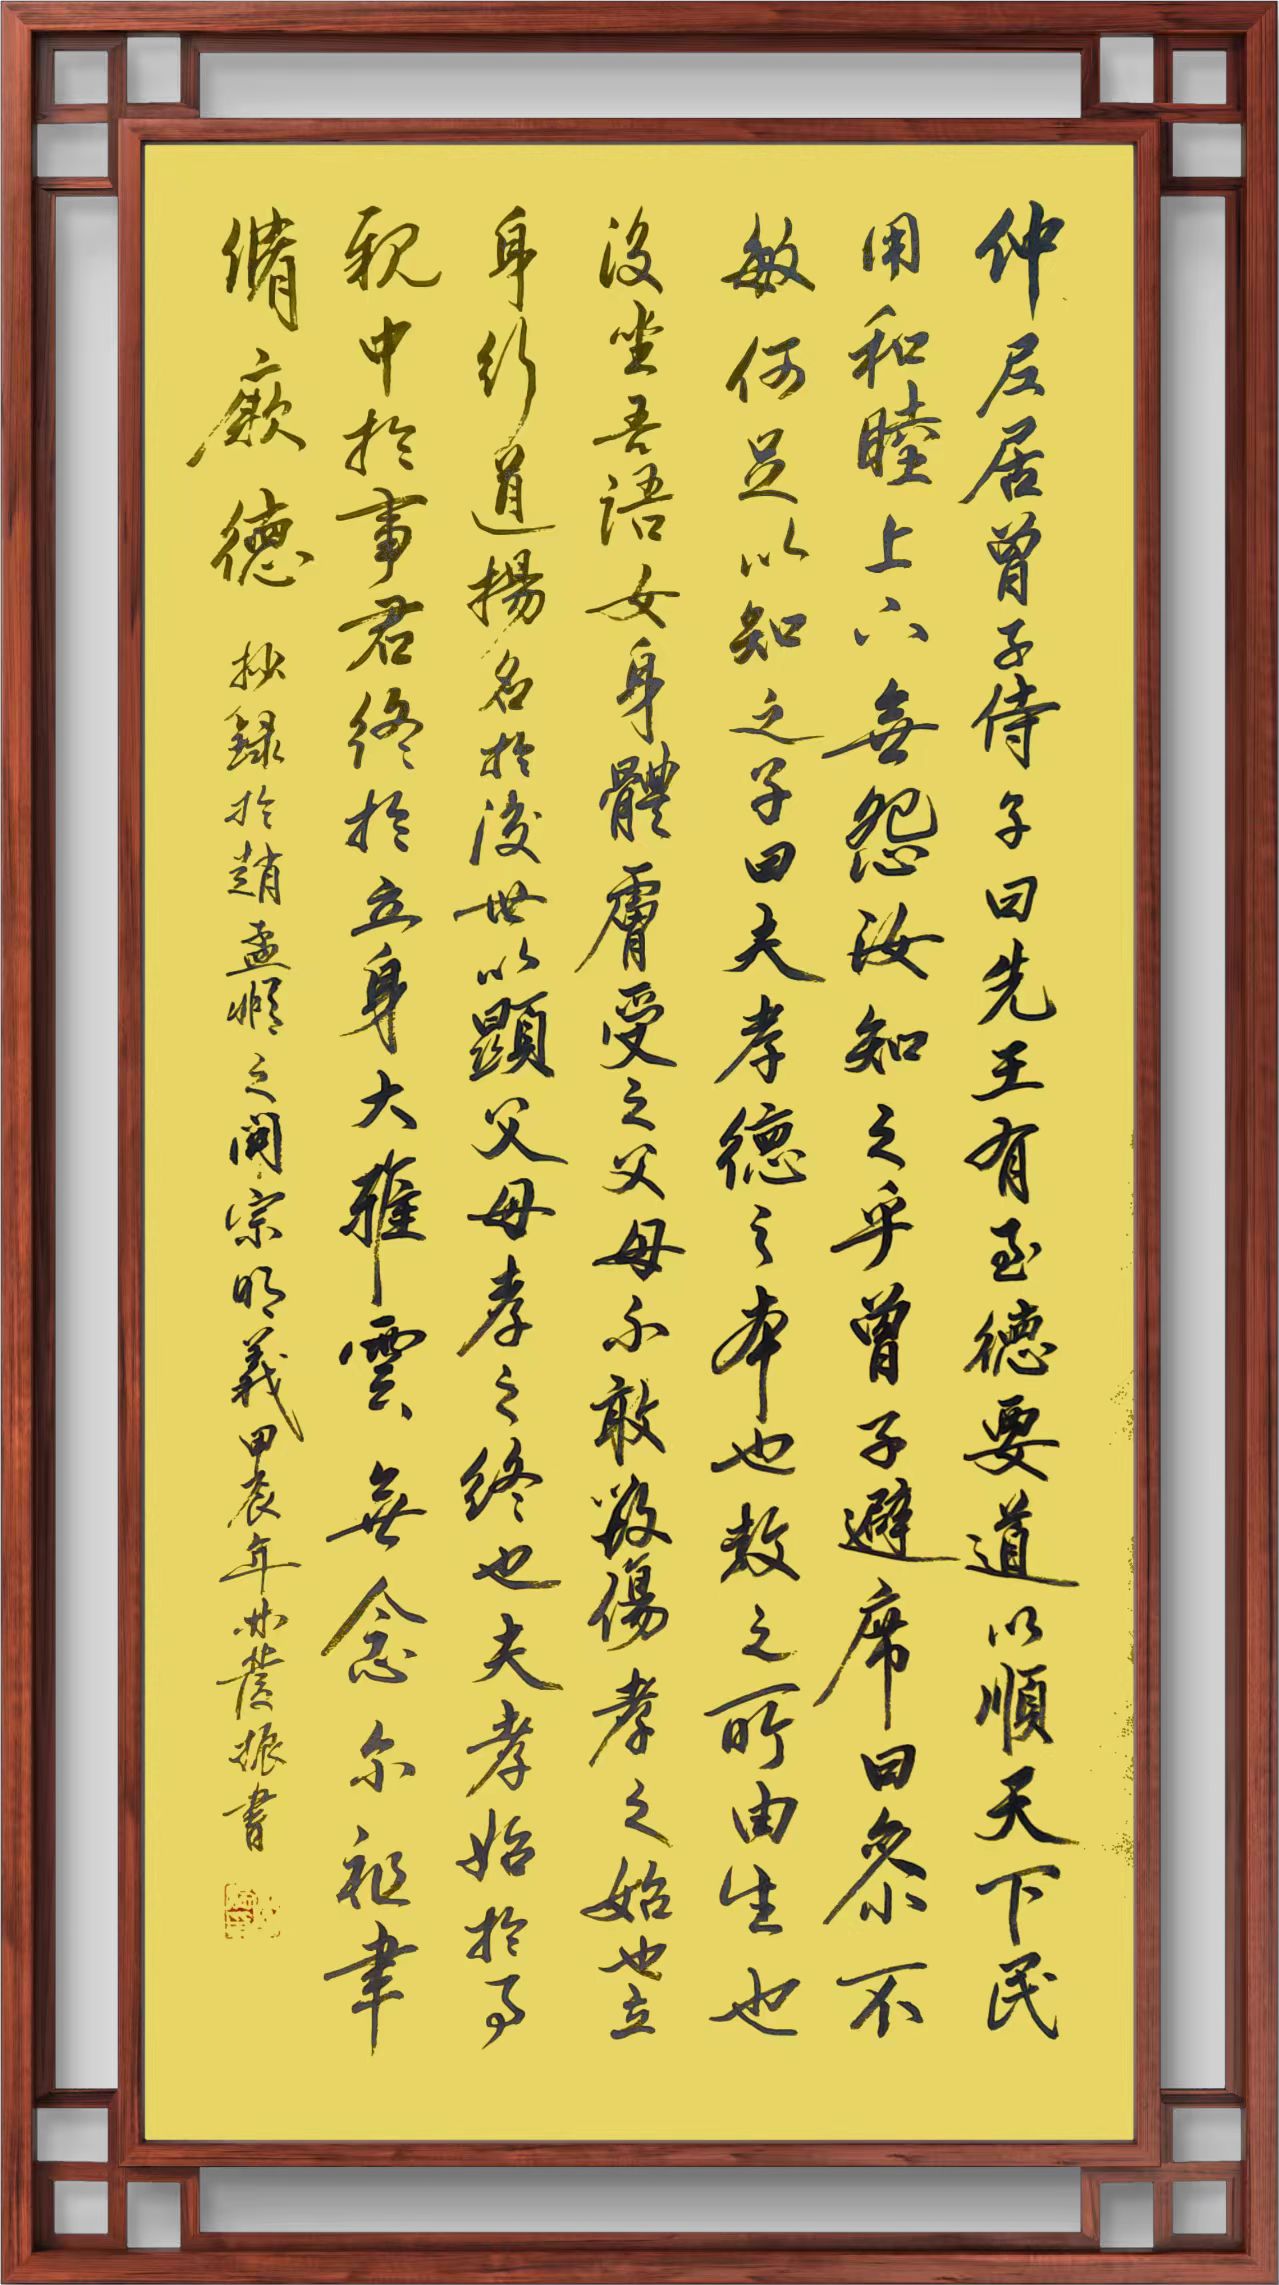 仲尼居曾子侍子曰先王有至德要道以順天下民
用和睦上下無怨汝知之乎曾子避席曰參不
敏何足以知之子曰夫孝德之本也教之所由生也
復坐吾語女身體膚受之父母不敢毀傷孝之始也立
身行道揚名於後世以顯父母孝之終也夫孝始於事
親中於事君終於立身大雅雲無念尔祖聿
脩厥德
抄録於趙孟頫之開宗明義甲辰年 振書